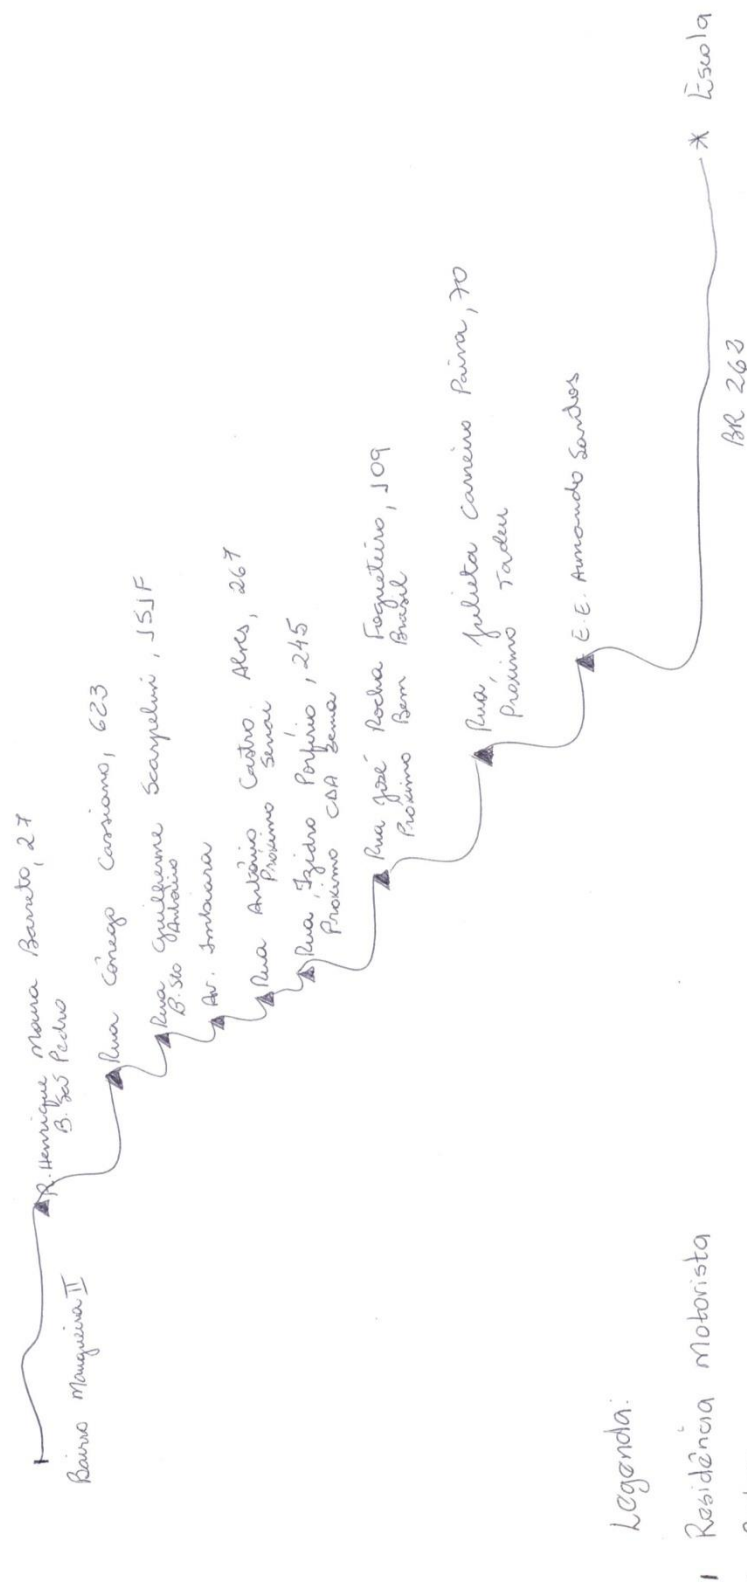 Bairro Mangueira II
R. Henrique Moura Barreto, 27
B. São Pedro
Rua Cônego Cassiano, 623
Rua Guilherme Scarpelini, 151F
B. Sto Antônio
Av. Imbiara
Rua Antônio Castro Alves, 267
Próximo Senai
Rua, Izidro Porfírio, 245
Próximo CDA Bema
Rua José Rocha Fogueteiro, 109
Próximo Bem Brasil
Rua, Julieta Carneiro Paiva, 70
Próximo Tadeu
E.E. Armando Santos
BR 262
* Escola
Legenda:
Residência motorista